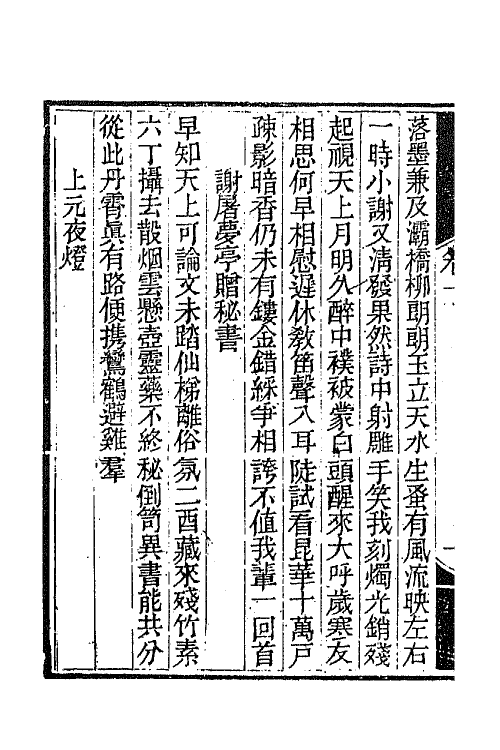 落墨兼及灞橋柳朗朗玉立天水生蚤有風流映左右
一時小謝又淸發果然詩中射雕手笑我刻燭光銷殘
起視天上月明久醉中襆被蒙白頭醒來大呼歲寒友
相思何早相慰遲休敎笛聲入耳陡試看昆華十萬戸
疎影暗香仍未有鏤金錯綵爭相誇不値我輩一回首
謝屠夢亭贈秘書
早知天上可論文未踏仙梯離俗氛二酉藏來殘竹素
六丁攝去散烟雲懸壺靈藥不終秘倒笥異書能共分
從此丹霄眞有路便携鸞鶴避雞羣
上元夜燈